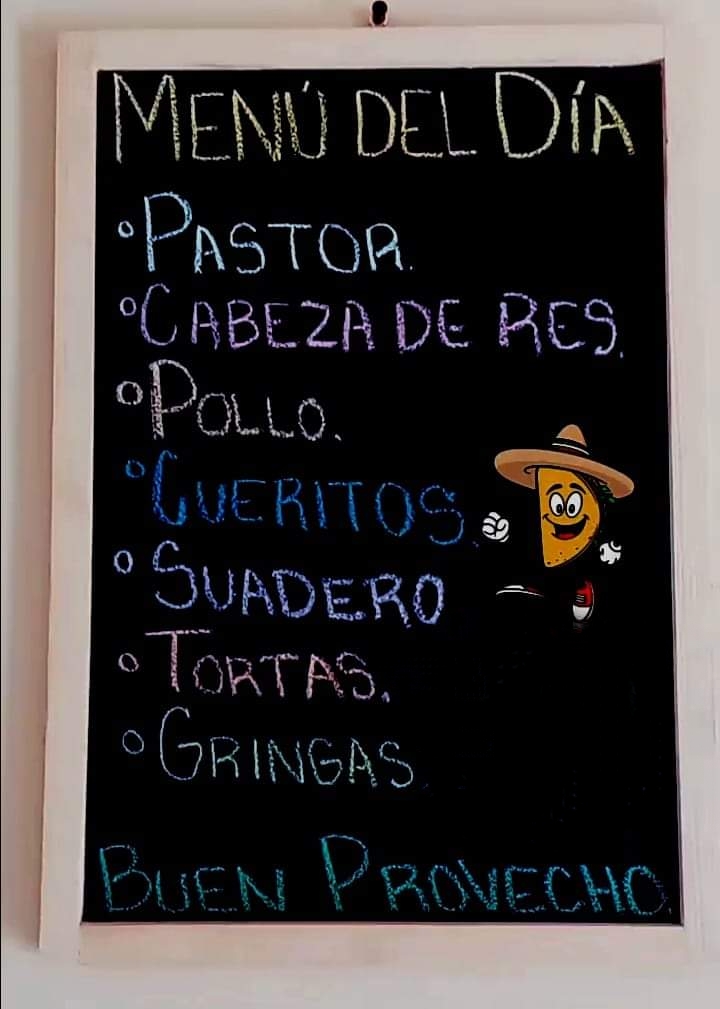 MENÚ DEL DÍA
° PASTOR.
° CABEZA DE RES.
° POLLO.
° CUERITOS.
° SUADERO
° TORTAS.
° GRINGAS
BUEN PROVECHO.